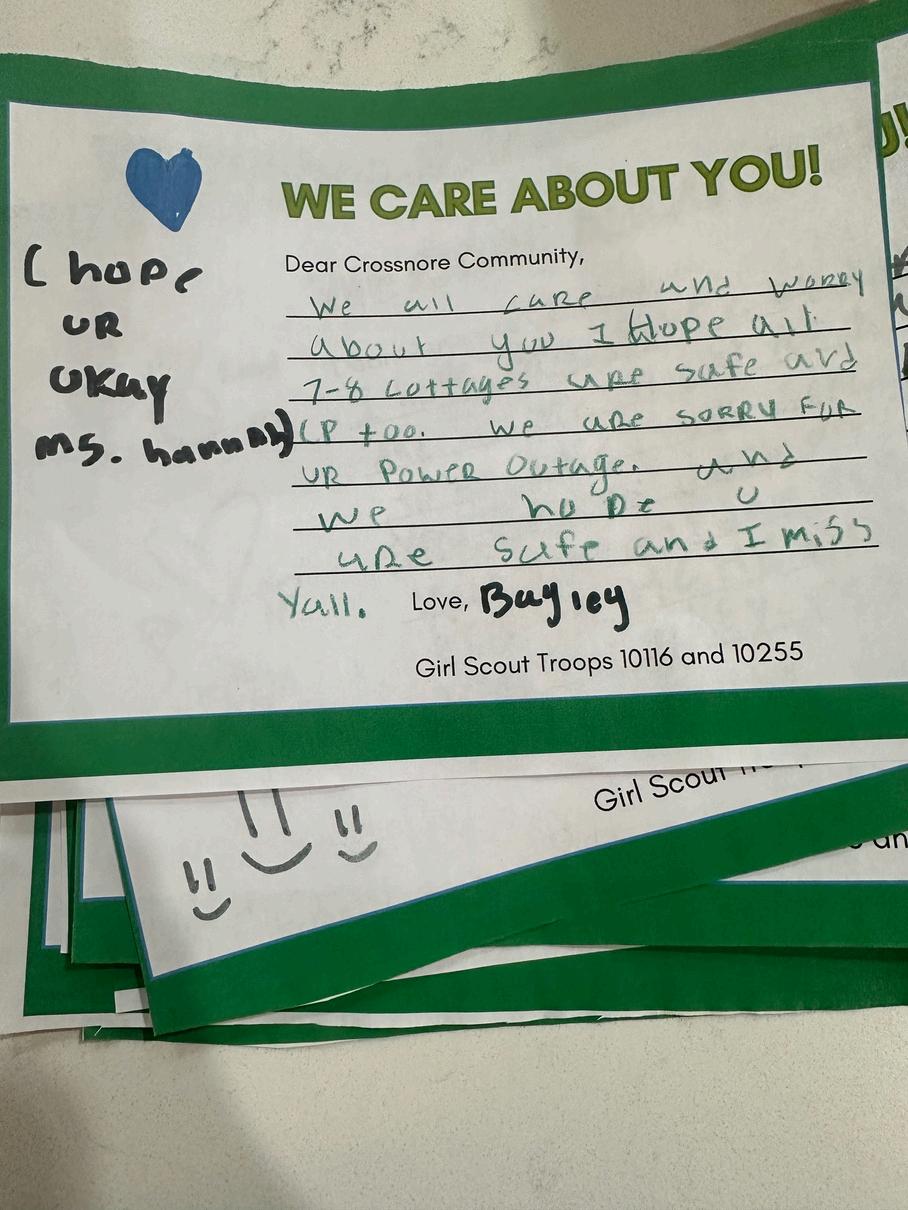 WE CARE ABOUT YOU!
Dear Crossnore Community,
We all care and worry
about you I Hope all
7-8 cottages are safe and
CP too. We are SORRY FOR
UR Power Outage. and
we hope u
are safe and I miss
Yall. Love, Bayley
Girl Scout Troops 10116 and 10255
(hope
UR
Okay
ms. hannah)
U!
Girl Scout
an